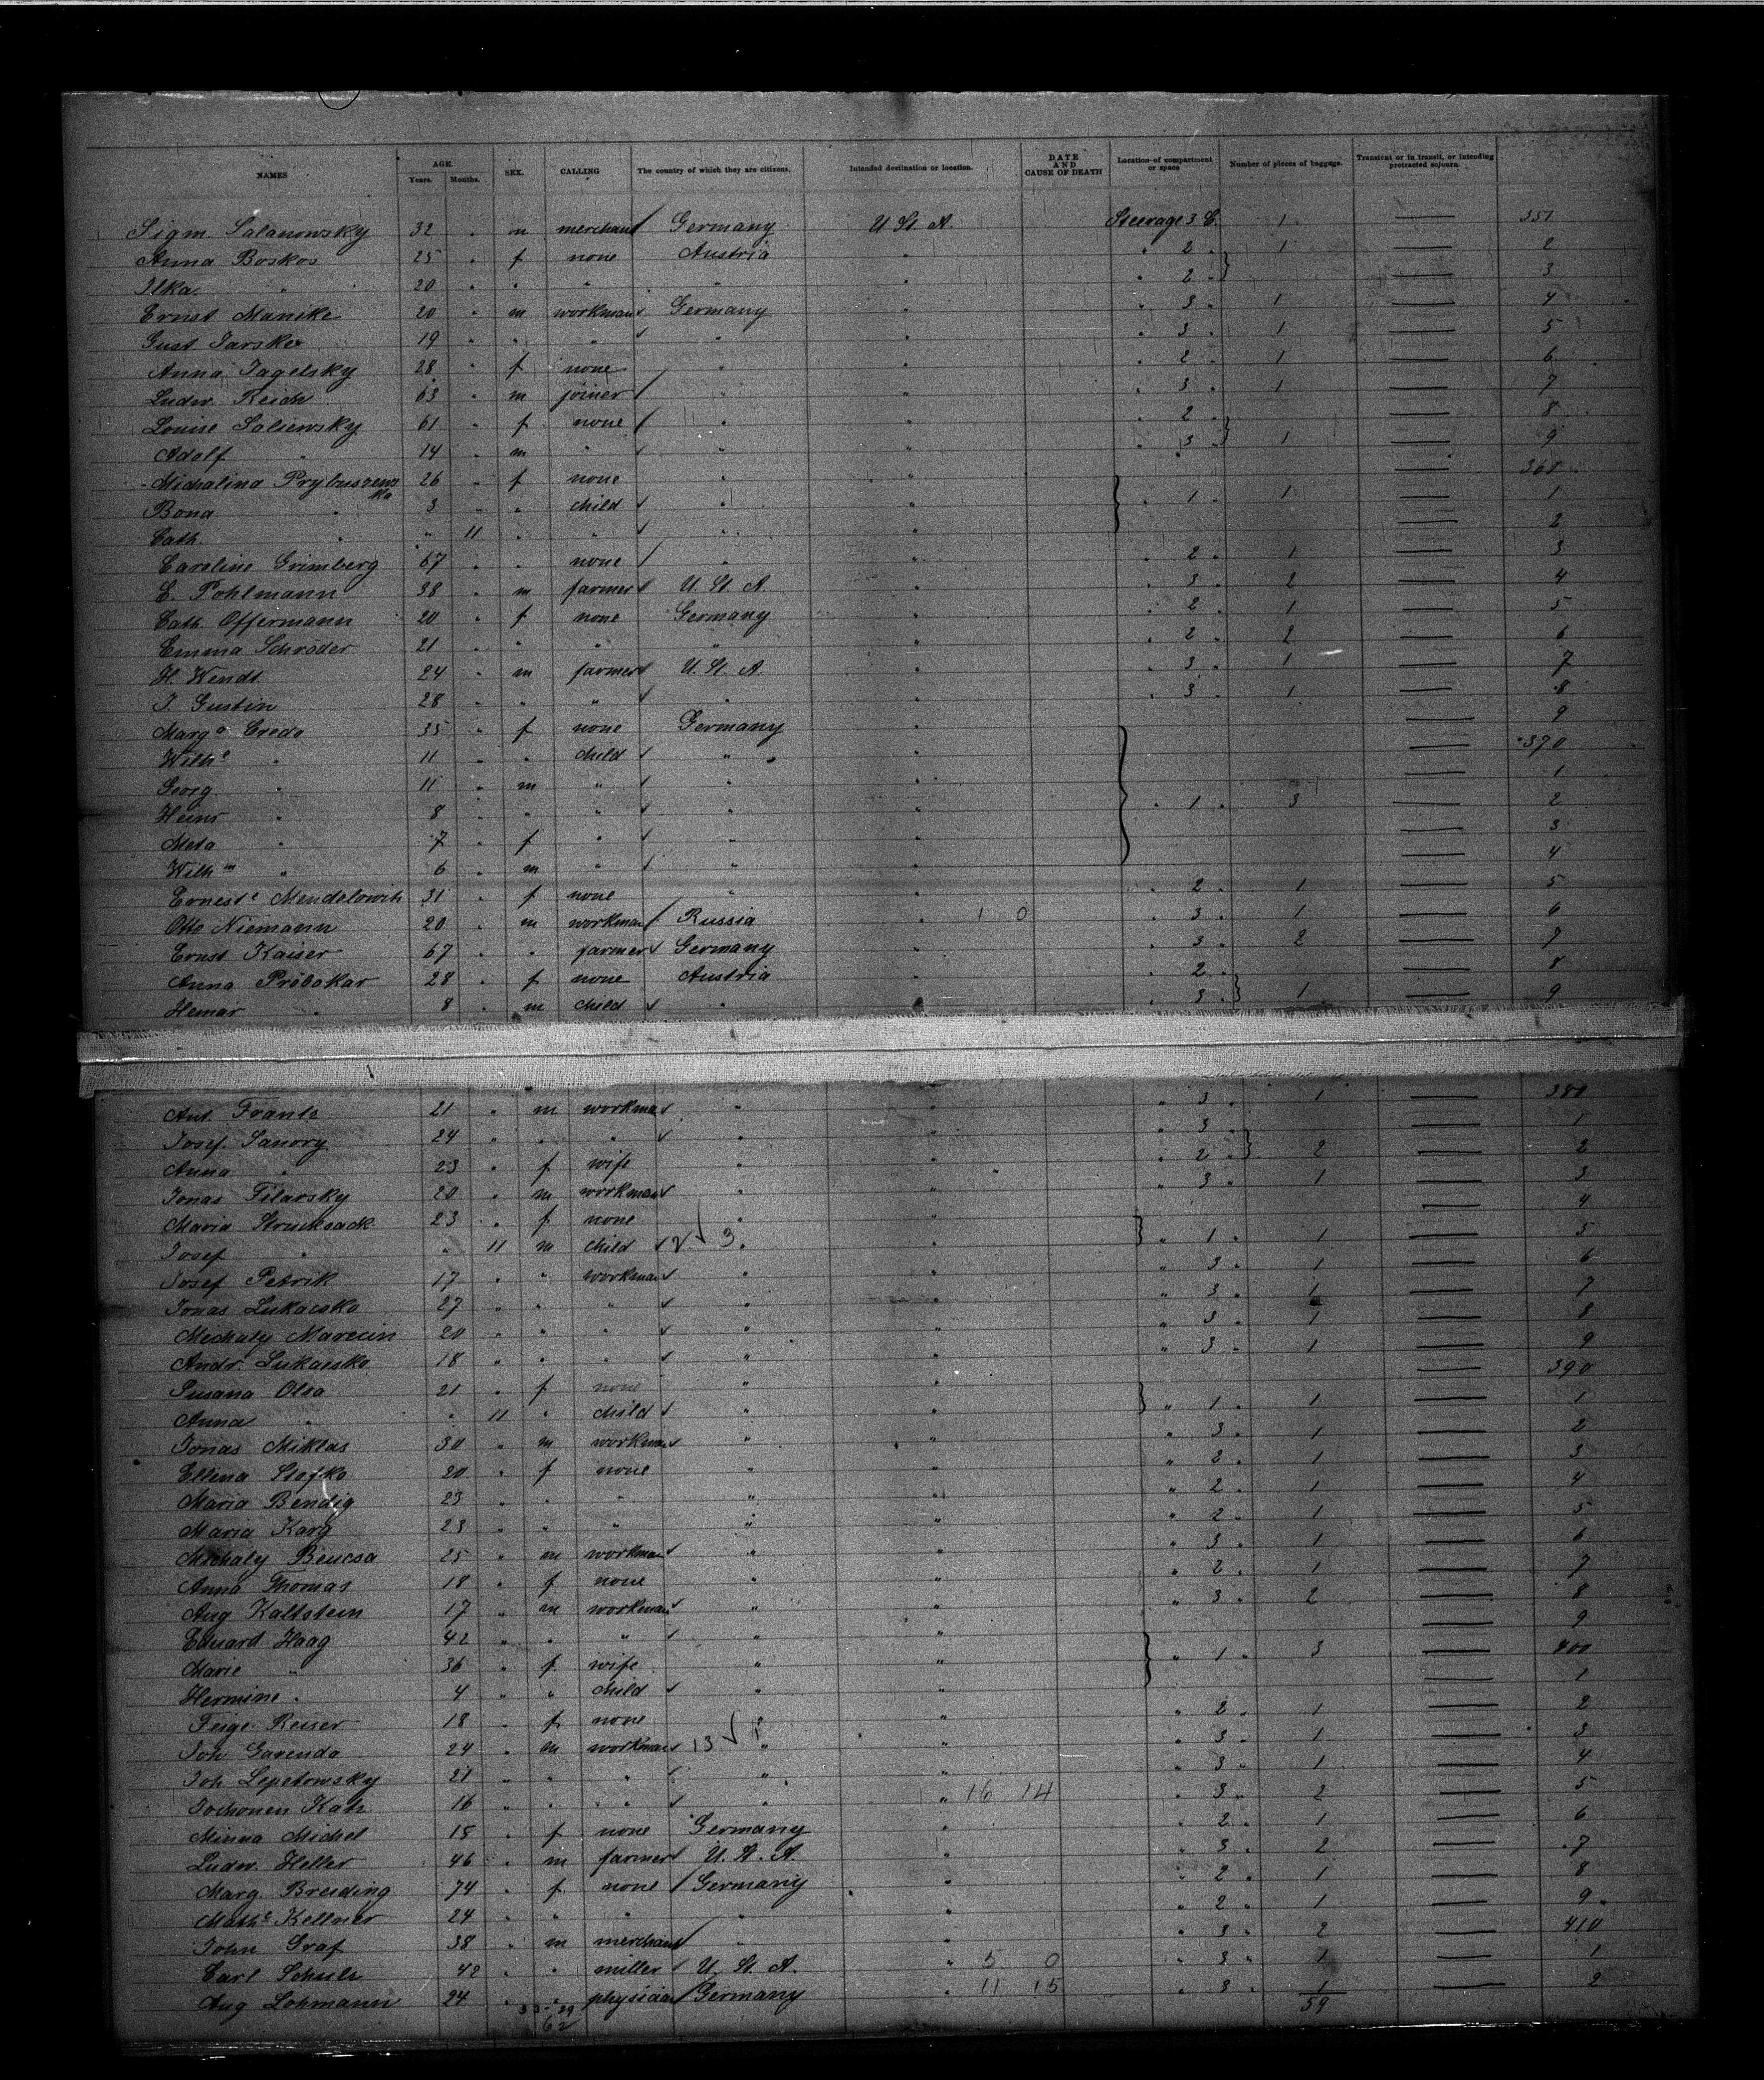 NAMES AGE. Years. Months. SEX. CALLING The country of which they are citizens. Intended destination or location. DATE AND CAUSE OF DEATH Location of compartment or space Number of pieces of baggage. Transient or in transit, or intending protracted sojourn.
Sigm. Salanowsky 32 " m merchant Germany U. St. A. Steerage 3 C. 1 — 351
Anna Boskos 25 " f none Austria " " 2 " 1 — 2
Ilka " 20 " " " " " " 2 " — 3
Ernst Manike 20 " m workman Germany " " 3 " 1 — 4
Gust. Jarske 19 " " " " " " 3 " 1 — 5
Anna Jagelsky 28 " f none " " " 2 " 1 — 6
Ludw. Reich 63 " m joiner " " " 3 " 1 — 7
Louise Saliewsky 61 " f none " " " 2 " — 8
Adolf " 14 " m " " " " 3 " 1 — 9
Michalina Prybuszews ka 26 " f none " " — 360
Bona " 3 " " child " " " 1 " 1 — 1
Cath. " " 11 " " " " — 2
Caroline Grimberg 67 " " none " " " 2 " 1 — 3
E. Pohlmann 38 " m farmer U. St. A. " " 3 " 2 — 4
Cath. Offermann 20 " f none Germany " " 2 " 1 — 5
Emma Schröder 21 " " " " " " 2 " 2 — 6
H. Wendt 24 " m farmer U. St. A. " " 3 " 1 — 7
J. Gustin 28 " " " " " " 3 " 1 — 8
Marg.a Credo 35 " f none Germany " — 9
Wilh.e " 11 " " child " " — 370
Georg " 11 " m " " " — 1
Heinr " 8 " " " " " " 1 " 3 — 2
Meta " 7 " f " " " — 3
Wilh.m " 6 " m " " " — 4
Ernest.e Mendelowitz 31 " f none " " " 2 " 1 — 5
Otto Niemann 20 " m workman Russia " 1 0 " 3 " 1 — 6
Ernst Kaiser 67 " " farmer Germany " " 3 " 2 — 7
Anna Pröbakar 28 " f none Austria " " 2 " — 8
Hemar " 8 " m child " " " 3 " 1 — 9
Ant. Frantz 21 " m workman " " " 3 " 1 — 380
Josef Sanory 24 " " " " " " 3 " — 1
Anna " 23 " f wife " " " 2 " 2 — 2
Jonas Filarsky 20 " m workman " " " 3 " 1 — 3
Maria 23 " f none " " — 4
Josef " " 11 m child 2 3 " " " 1 " 1 — 5
Josef Petrik 17 " " workman " " " 3 " 1 — 6
Jonas Lukacsko 27 " " " " " " 3 " 1 — 7
Michaly Marecin 20 " " " " " " 3 " 1 — 8
Andr. Lukacsko 18 " " " " " " 3 " 1 — 9
Susana Olsa 21 " f none " " — 390
Anna " " 11 " child " " " 1 " 1 — 1
Jonas Miklas 30 " m workman " " " 3 " 1 — 2
Ellena Stafko 20 " f none " " " 2 " 1 — 3
Maria Bendig 23 " " " " " " 2 " 1 — 4
Maria Karg 23 " " " " " " 2 " 1 — 5
Michaly Beucsa 25 " m workman " " " 3 " 1 — 6
Anna Thomas 18 " f none " " " 2 " 1 — 7
Aug Kaltstein 17 " m workman " " " 3 " 2 — 8
Eduard Haag 42 " " " " " — 9
Marie " 36 " f wife " " " 1 " 3 — 400
Hermine " 4 " " child " " — 1
Feige Reiser 18 " f none " " " 2 " 1 — 2
Joh Garenda 24 " m workman 13 1 " " " 3 " 1 — 3
Joh Lepetowsky 21 " " " " " " 3 " 1 — 4
Jochonen Katz 16 " " " " " 16 14 " 3 " 2 — 5
Minna Michel 15 " f none Germany " " 2 " 1 — 6
Ludw. Heller 46 " m farmer U. St. A. " " 3 " 2 — 7
Marg. Breiding 74 " f none Germany " " 2 " 1 — 8
Math.e Kellner 24 " " " " " " 2 " 1 — 9
John Graf 38 " m merchant " " " 3 " 2 — 410
Carl Schulz 42 " " miller U. St. A. " 5 0 " 3 " 1 — 1
Aug Lohmann 24 " " physician Germany " 11 15 " 3 " 1 — 2
33 - 29 59
62